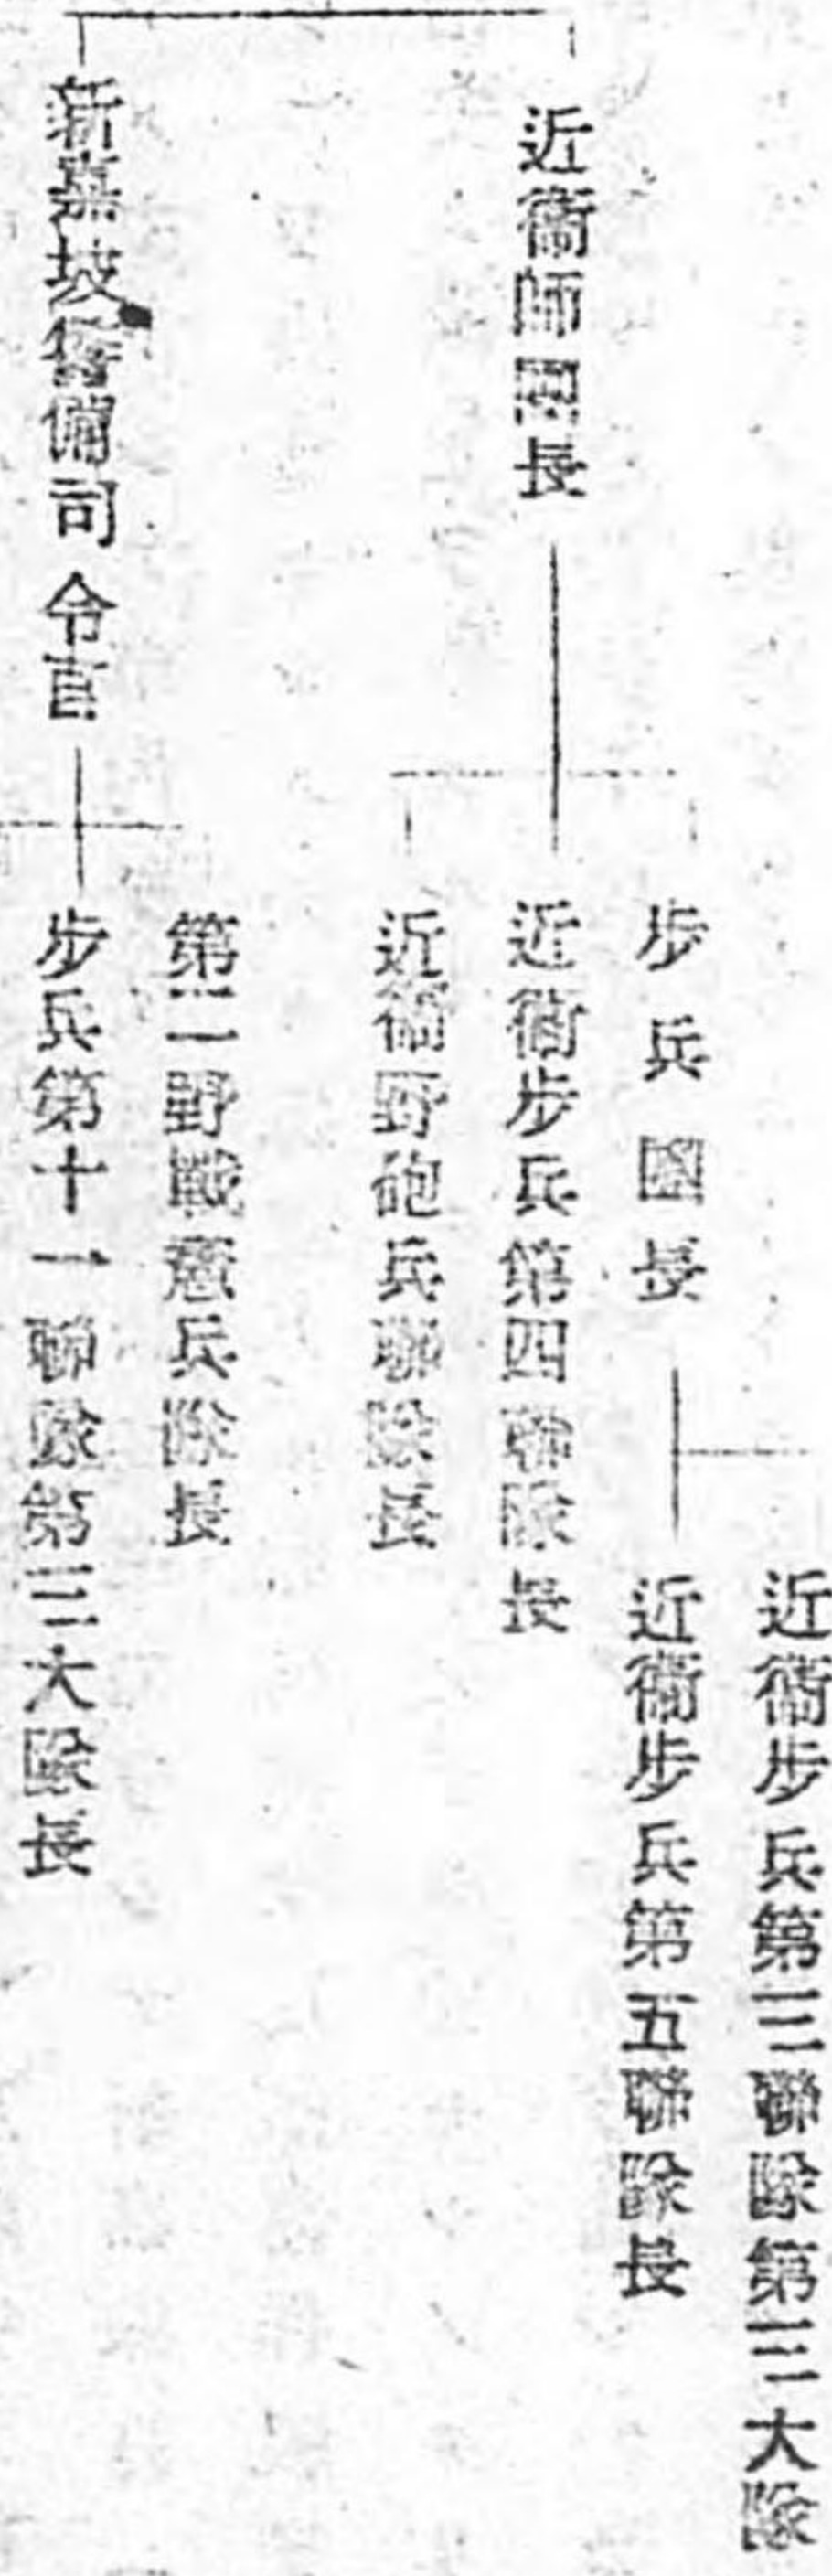 近衞師團長
步兵團長
近衞步兵第三聯隊第三大隊
近衞步兵第五聯隊長
近衞步兵第四聯隊長
近衞野砲兵聯隊長
新嘉坡警備司令官
第二野戰憲兵隊長
步兵第十一聯隊第三大隊長